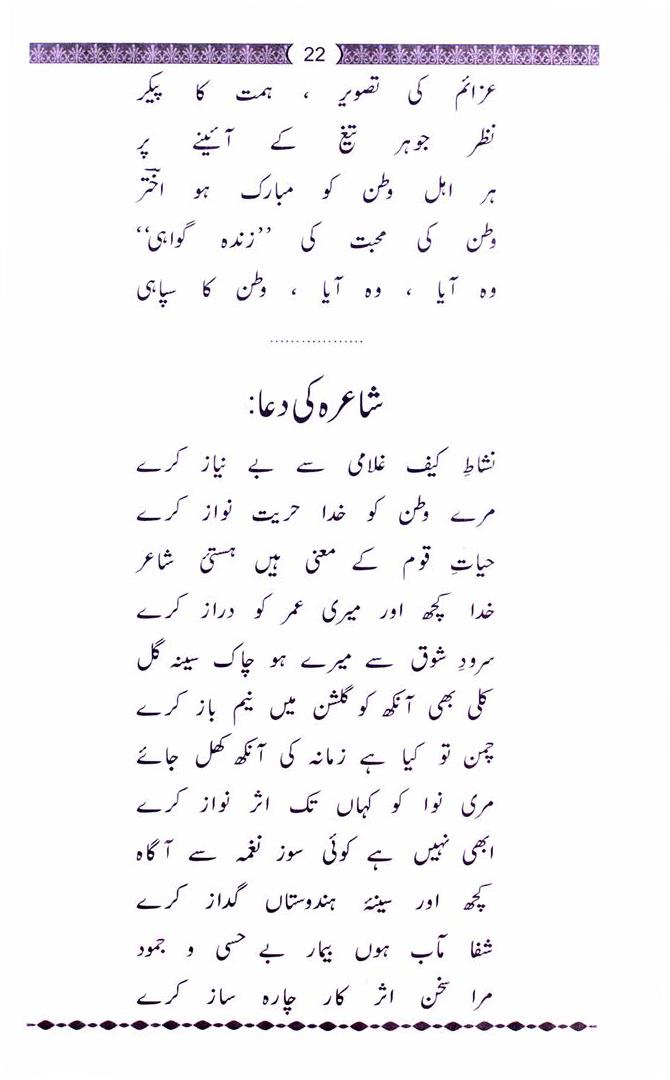 22
عزائم کی تصویر ، ہمت کا پیکر
نظر جوہر تیغ کے آئینے پر
ہر اہل وطن کو مبارک ہو اخترؔ
وطن کی محبت کی ’’زندہ گواہی‘‘
وہ آیا ، وہ آیا ، وطن کا سپاہی
..................
شاعرہ کی دعا:
نشاطِ کیف غلامی سے بے نیاز کرے
مرے وطن کو خدا حریت نواز کرے
حیاتِ قوم کے معنی ہیں ہستیٔ شاعر
خدا کچھ اور میری عمر کو دراز کرے
سرودِ شوق سے میرے ہو چاک سینہ گل
کلی بھی آنکھ کو گلشن میں نیم باز کرے
چمن تو کیا ہے زمانہ کی آنکھ کھل جائے
مری نوا کو کہاں تک اثر نواز کرے
ابھی نہیں ہے کوئی سوز نغمہ سے آگاہ
کچھ اور سینۂ ہندوستاں گداز کرے
شفا مآب ہوں بیمار بے حسی و جمود
مرا سخن اثر کار چارہ ساز کرے